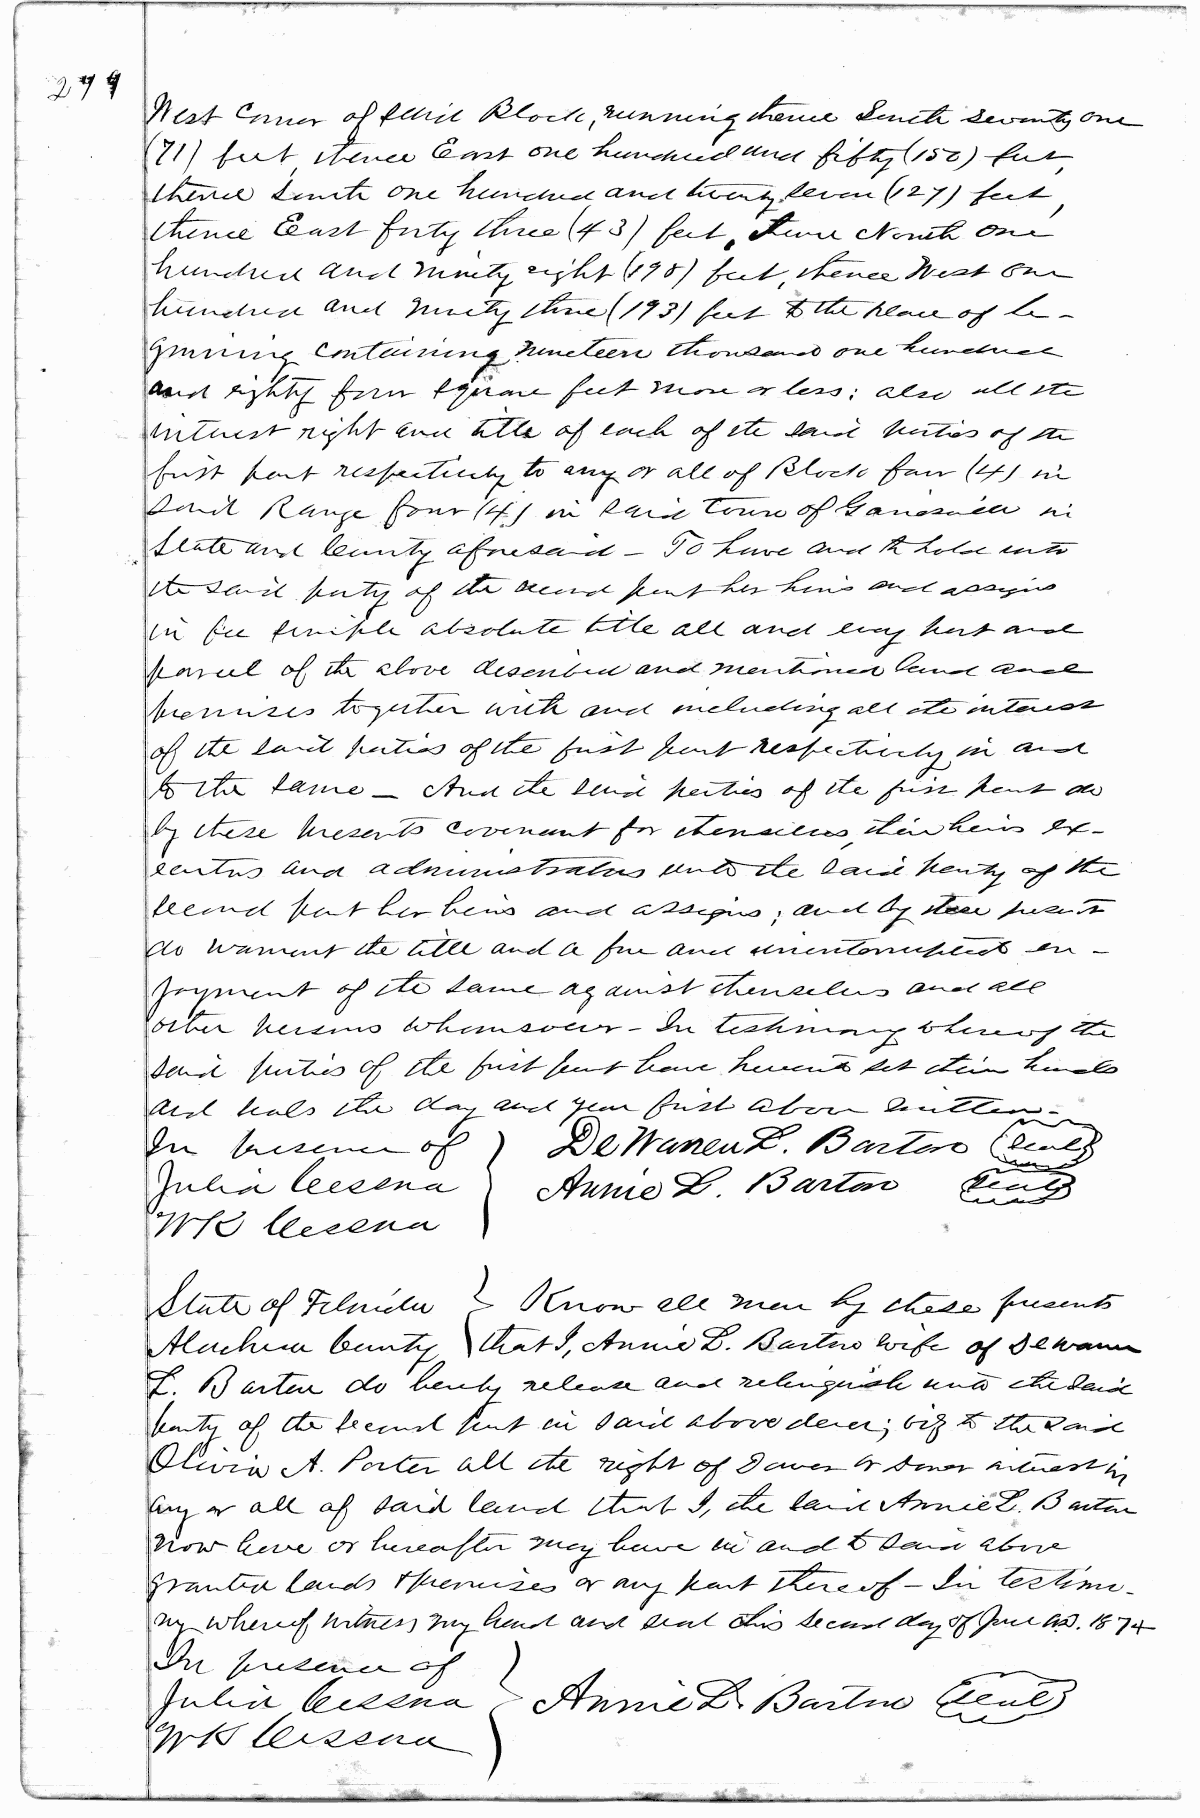 279
West Corner of said Block, running thence South seventy one
(71) feet, thence East one hundred and fifty (150) feet,
thence South one hundred and twenty seven (127) feet,
thence East forty three (43) feet, thence North one
hundred and ninety eight (198) feet, thence West one
hundred and ninety three (193) feet to the place of be-
ginning containing nineteen thousand one hundred
and eighty four square feet more or less; also all the
interest right and title of each of the said parties of the
first part respectively to any or all of Block four (4) in
said Range four (4) in said town of Gainesville in
State and County aforesaid - To have and to hold unto
the said party of the second part her heirs and assigns
in fee simple absolute title all and every part and
parcel of the above described and mentioned land and
premises together with and including all the interest
of the said parties of the first part respectively in and
to the same - And the said parties of the first part do
by these presents covenant for themselves, their heirs ex-
ecutors and administrators unto the said party of the
second part her heirs and assigns; and by these presents
do warrant the title and a free and uninterrupted en-
joyment of the same against themselves and all
other persons whomsoever - In testimony whereof the
said parties of the first part have hereunto set their hands
and seals the day and year first above written -
In presence of } DeWarren L. Barton (Seal)
Julia Cessna Annie L. Barton (Seal)
W K Cessna
State of Florida } Know all men by these presents
Alachua County that I, Annie L. Barton wife of Dewarren
L. Barton do hereby release and relinquish unto the said
party of the second part in said above deed; viz to the said
Olivia A. Porter all the right of Dower or Dower interest in
any or all of said land that I, the said Annie L. Barton
now have or hereafter may have in and to said above
granted lands & premises or any part thereof - In testimo-
ny whereof witness my hand and seal this second day of June A.D. 1874
In presence of
Julia Cessna } Annie L. Barton (Seal)
W K Cessna